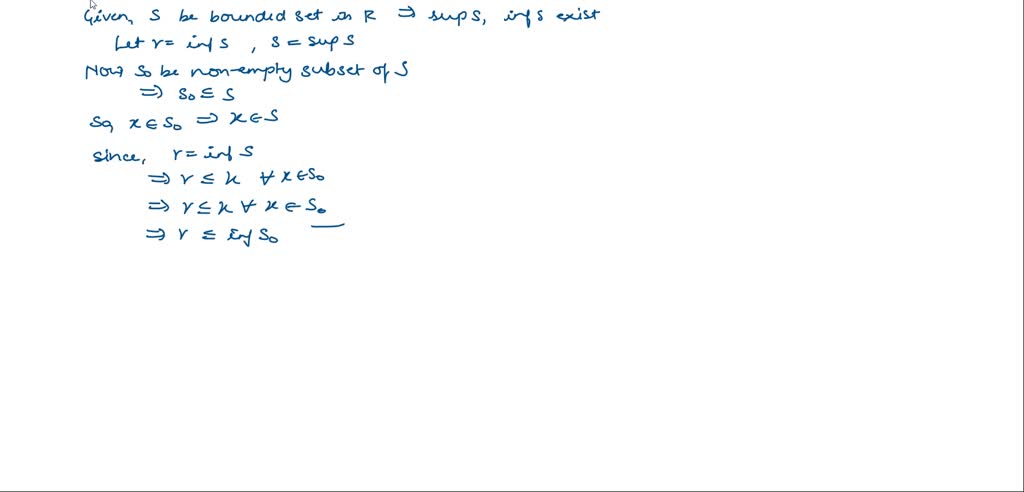 Given, S be bounded set in R ⇒ sup S, inf S exist
Let r = inf S , s = sup S
Now S₀ be non-empty subset of S
⇒ S₀ ⊆ S
So, x ∈ S₀ ⇒ x ∈ S
since, r = inf S
⇒ r ≤ x ∀ x ∈ S₀
⇒ r ≤ x ∀ x ∈ S₀
⇒ r ≤ inf S₀